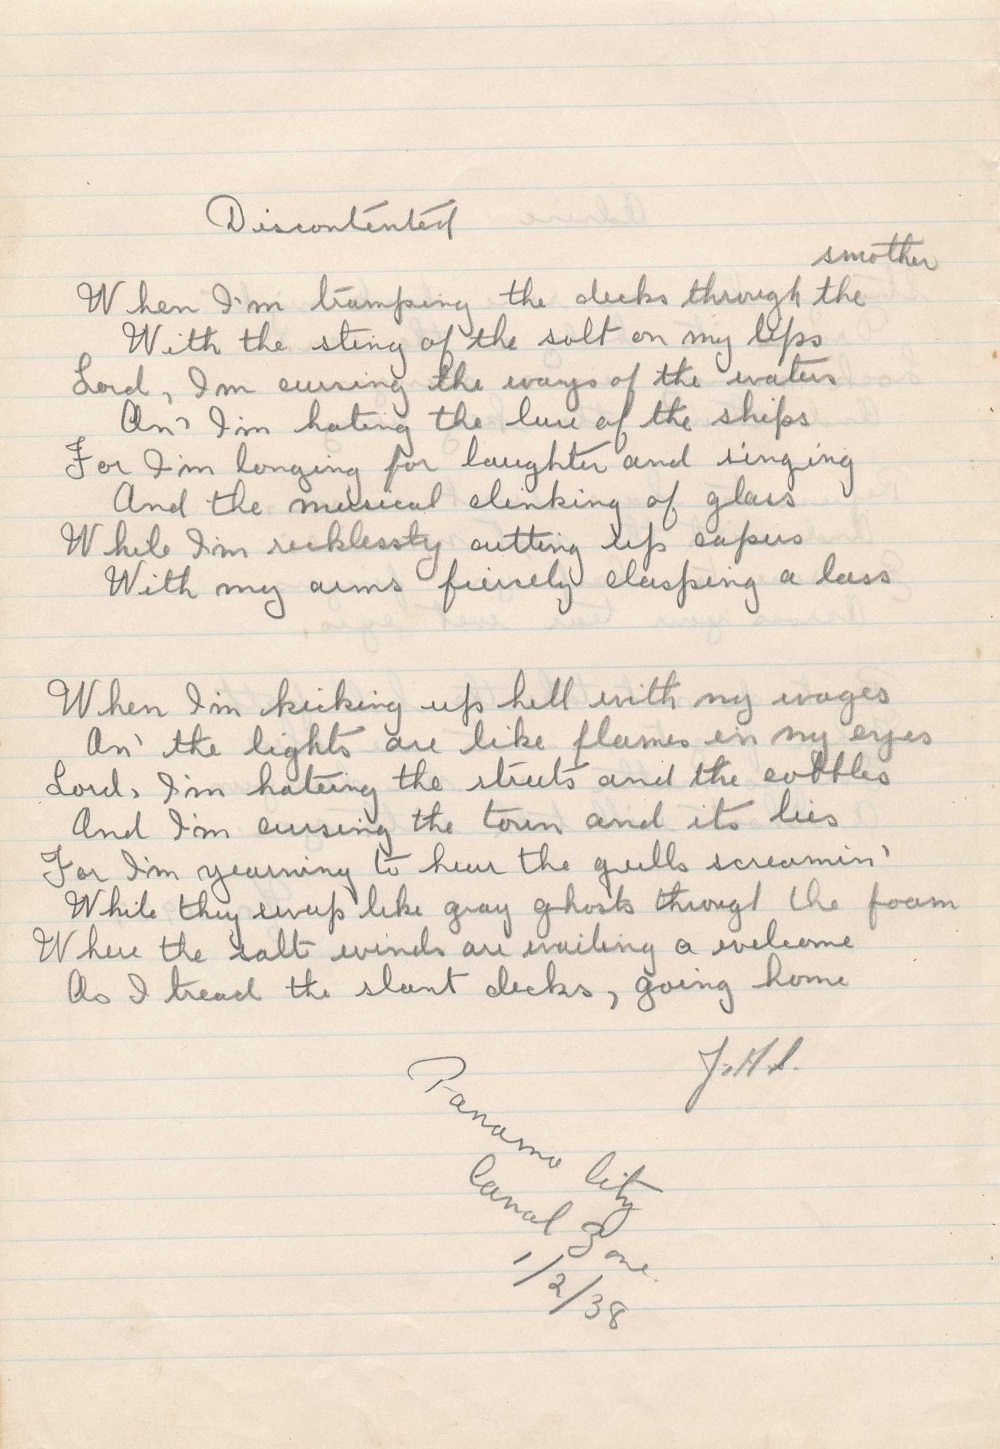 Discontented
smother
When I'm tramping the decks through the
With the sting of the salt on my lips
Lord, I'm cursing the ways of the waters
An' I'm hating the lure of the ships
For I'm longing for laughter and singing
And the musical clinking of glass
While I'm recklessly cutting up capers
With my arms fiercely clasping a lass
When I'm kicking up hell with my wages
An' the lights are like flames in my eyes
Lord, I'm hating the streets and the cobbles
And I'm cursing the town and its lies
For I'm yearning to hear the gulls screamin'
While they swup like gray ghosts through the foam
Where the salt winds are wailing a welcome
As I tread the slant decks, going home
Panama City
Canal Zone
1/2/38